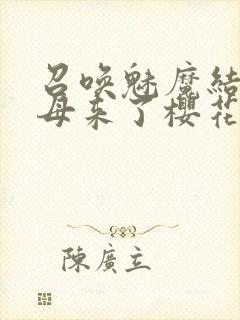 召喚魅魔結
母来了櫻花
陳廣立